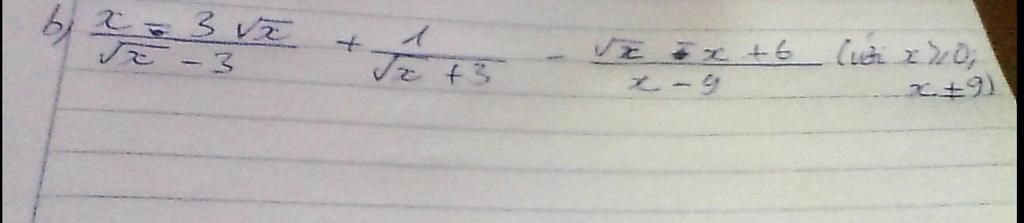 b) (x - 3√x)/(√x - 3) + 1/(√x + 3) - (√x - x + 6)/(x - 9) (với x ≥ 0; x ≠ 9)